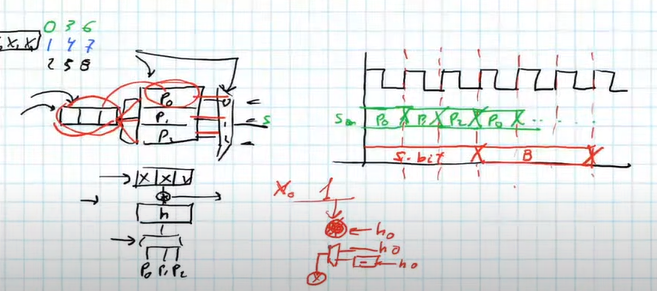 0 3 6
1 4 7
2 5 8
P0
P1
P2
0
1
S
X X X
h
P0 P1 P2
S P0 P1 P2 P0 ....
S-bit B
X0 1
h0
h0
h0